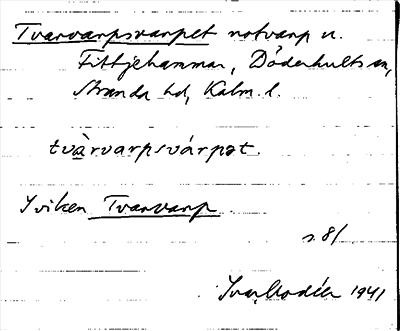 Tvarvarpsvarpet notvarp n.
Fittjehammar, Döderhults sn,
Stranda hd, Kalm. l.
tvàrvarpsvárpət.
I viken Tvarvarp.
s. 81
Ivar Modéer 1941